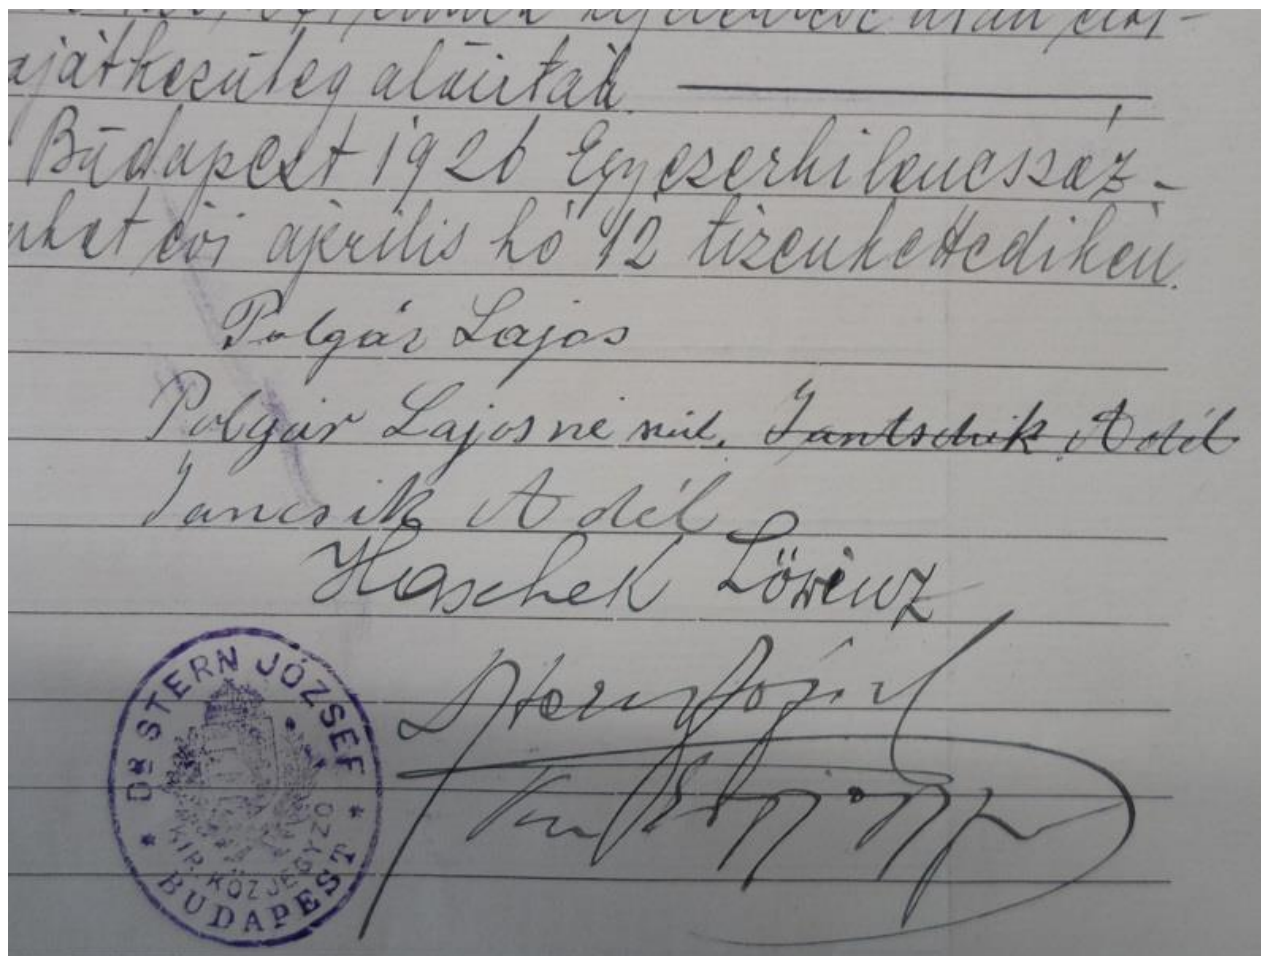 után
ajátkezűleg aláírták.
Budapest 1926 Egyezerkilencszáz-
nhat évi április hó 12 tizenkettedikén.
Polgár Lajos
Polgár Lajosné szül. Jantschik Adél
Jancsik Adél
Haschek Lőrincz
Stern József
DR STERN JÓZSEF
KIR. KÖZJEGYZŐ
* BUDAPEST *